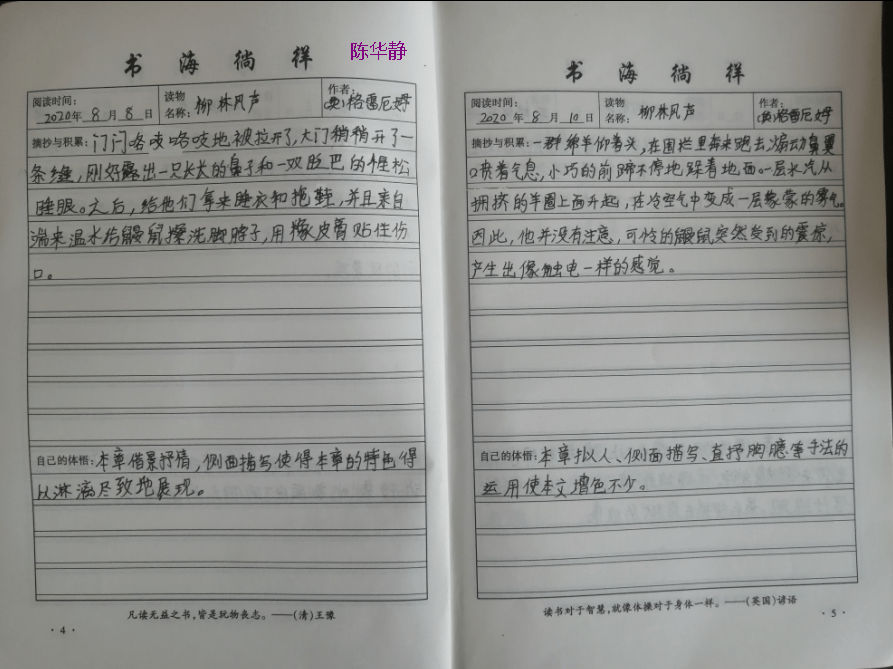 陈华静
书海徜徉
阅读时间：
2020年8月8日
读物
名称：柳林风声
作者：
(英)格雷厄姆
摘抄与积累：门闩咯吱咯吱地被拉开了,大门稍稍开了一
条缝,刚好露出一只长长的鼻子和一双眨巴的惺松
睡眼。之后,给他们拿来睡衣和拖鞋,并且亲自
端来温水给鼹鼠擦洗脚脖子,用橡皮膏贴住伤
口。
自己的体悟：本章借景抒情,侧面描写使得本章的特色得
以淋漓尽致地展现。
凡读无益之书,皆是玩物丧志。——(清)王豫
·4·
书海徜徉
阅读时间：
2020年8月10日
读物
名称：柳林风声
作者：
(英)格雷厄姆
摘抄与积累：一群绵羊仰着头,在围栏里奔来跑去,煽动鼻翼
喷着气息,小巧的前蹄不停地跺着地面。一层水汽从
拥挤的羊圈上面升起,在冷空气中变成一层蒙蒙的雾气。
因此,他并没有注意,可怜的鼹鼠突然受到的震惊,
产生出像触电一样的感觉。
自己的体悟：本章拟人、侧面描写、直抒胸臆等手法的
运用使本文增色不少。
读书对于智慧,就像体操对于身体一样。——(英国)谚语
·5·